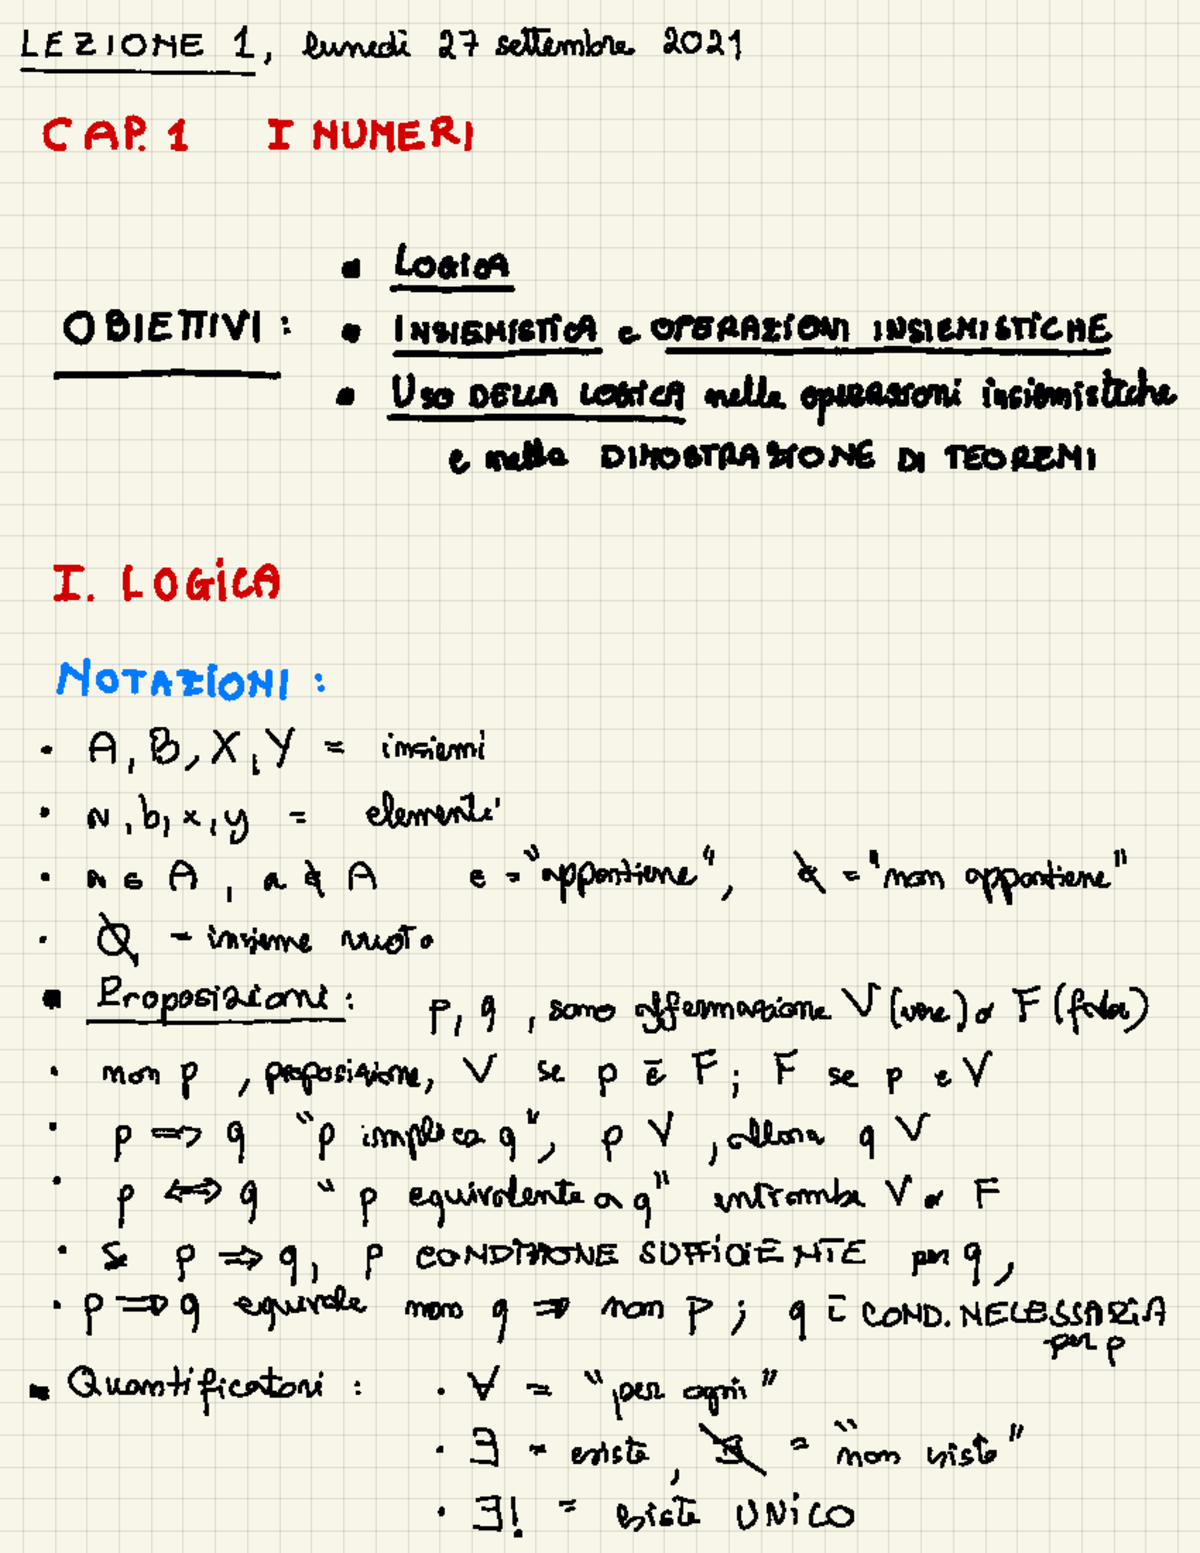 LEZIONE 1, lunedì 27 settembre 2021
CAP. 1 I NUMERI
• LOGICA
OBIETTIVI : • INSIEMISTICA e OPERAZIONI INSIEMISTICHE
• USO DELLA LOGICA nelle operazioni insiemistiche
e nella DIMOSTRAZIONE DI TEOREMI
I. LOGICA
NOTAZIONI :
• A, B, X, Y = insiemi
• a, b, x, y = elementi
• a ∈ A, a ∉ A ∈ = "appartiene", ∉ = "non appartiene"
• ∅ = insieme vuoto
▪ Proposizioni : p, q, sono affermazione V (vere) o F (false)
• non p, proposizione, V se p è F; F se p è V
• p ⇒ q "p implica q", p V, allora q V
• p ⇔ q "p equivalente a q" entrambe V o F
• Se p ⇒ q, p CONDIZIONE SUFFICIENTE per q,
• p ⇒ q equivale non q ⇒ non p; q è COND. NECESSARIA
per p
▪ Quantificatori : • ∀ = "per ogni"
• ∃ = esiste, ∄ = "non esiste"
• ∃! = esiste UNICO